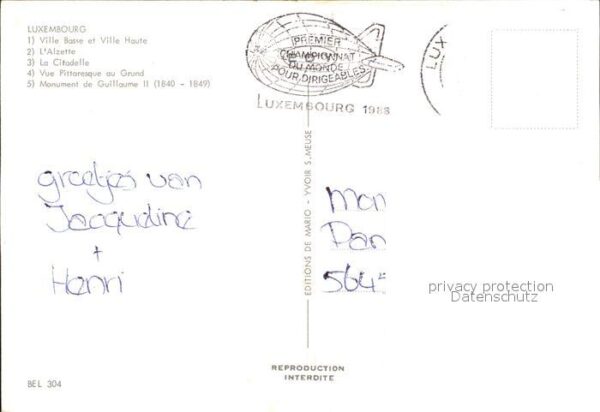 LUXEMBOURG
1) Ville Basse et Ville Haute
2) L'Alzette
3) La Citadelle
4) Vue Pittoresque au Grund
5) Monument de Guillaume II (1840 - 1849)
PREMIER
CHAMPIONNAT
DU MONDE
POUR DIRIGEABLES
LUXEMBOURG 1988
LUX
groetjes van
Jacqueline
+
Henri
EDITIONS DE MARIO - YVOIR S. MEUSE
Mon
Pan
564
privacy protection
Datenschutz
REPRODUCTION
INTERDITE
BEL 304